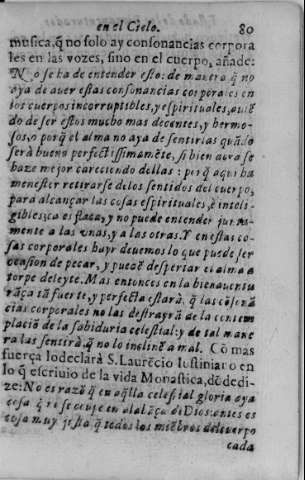 en el Cielo. 80
musica, q̃ no solo ay consonancias corpora
les en las vozes, sino en el cuerpo, añade:
No se ha de entender esto: de manera q̃ no
aya de auer estas consonancias corporales en
los cuerpos incorruptibles, y espirituales, auiẽ
do de ser estos mucho mas decentes, y hermo-
sos, o porq̃ el alma no aya de sentirlas quãdo
será buena perfectissimamẽte, si bien aora se
haze mejor careciendo dellas: porq̃ aqui ha
menester retirarse de los sentidos del cuerpo,
para alcançar las cosas espirituales, è inteli-
gibles; ca es flaca, y no puede entender junta-
mente a las vnas, y a las otras. Y en estas co-
sas corporales huyr deuemos lo que puede ser
ocasion de pecar, y puede despertar el alma a
torpe deleyte. Mas entonces en la bienauentu
rãça tã fuerte, y perfecta estarà, q̃ las cõsonã
cias corporales no las destrayrã de la contem
placiõ de la sabiduria celestial: y de tal mane
ra las sentirà, q̃ no lo incline a mal. Cõ mas
fuerça lo declarà S. Laurẽcio Iustiniano en
lo q̃ escriuio de la vida Monastica, dõde di-
ze: No es razõ q̃ en aq̃lla celestial gloria aya
cosa q̃ no se ocupe en alabãça de Dios: antes es
cosa muy justa q̃ todos los miẽbros del cuerpo
cada